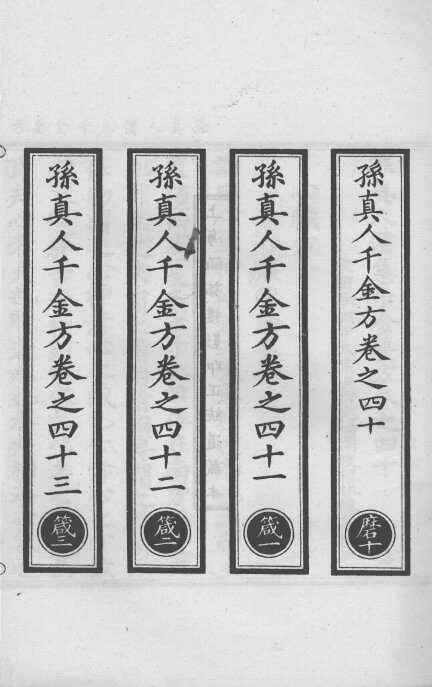 孫真人千金方卷之四十
磨十
孫真人千金方卷之四十一
箴一
孫真人千金方卷之四十二
箴二
孫真人千金方卷之四十三
箴三